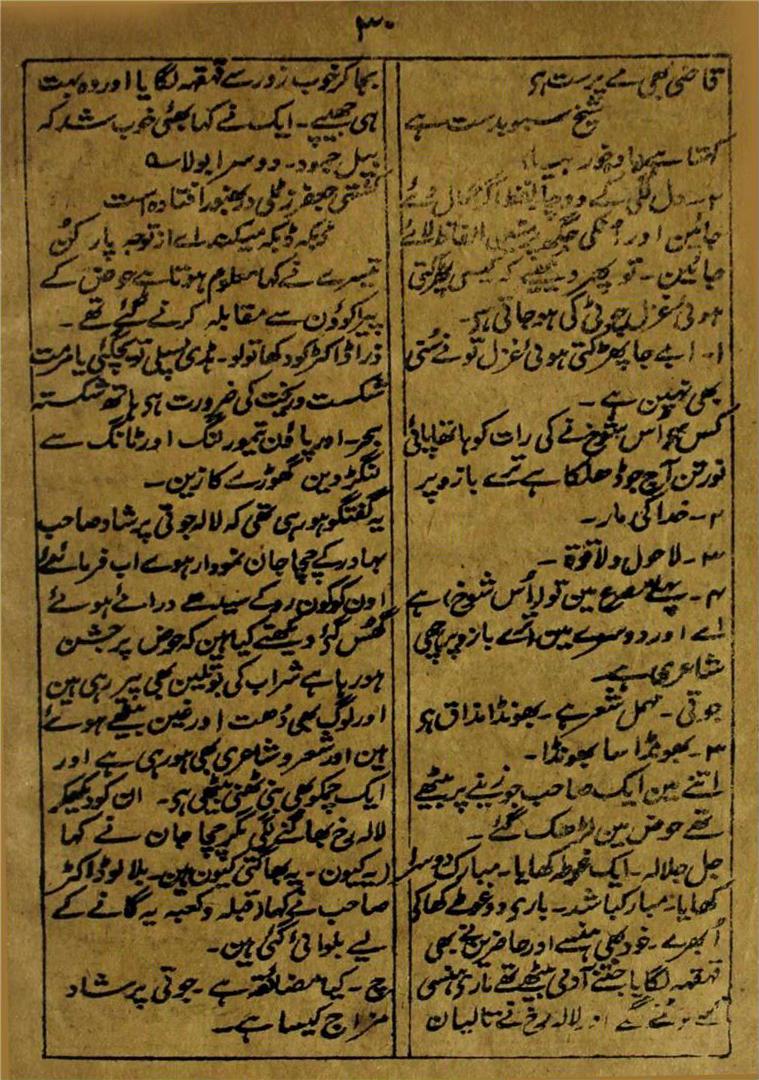 ۳۰
قاضی بھی مے پرست ہی
شیخ سبو بدست ہے
۲۔ دل لگی کے دو چار لفظ
جائین اور اونکی جگھ الفاظ لائے
جائین۔ تو پھر دیکھیے کہ کیسی پھڑکتی
ہوئی غزل چوٹی کی ہو جاتی ہی۔
۱۔ ابے جا پھڑکتی ہوئی غزل تو نے سُنی
بھی نہین ہے۔
کس اُس شوخ نے کی رات کو ہاتھاپائی
نورتن آج جو ڈھلکا ہے ترے بازو پر
۲۔ خدا کی مار۔
۳۔ لا حول ولا قوۃ۔
۴۔ پہلے مصرع مین تو (اُس شوخ) ہے
اے اور دوسرے مین ترے بازو پر اچھی
شاعری ہے۔
جوتی۔ مہمل شعر ہے۔ بھونڈا مذاق ہی
۳۔ بھونڈا سا بھونڈا۔
اتنے مین ایک صاحب جو زینے پر بیٹھے
تھے حوض مین لڑھک گئے۔
جل جلالہ۔ ایک غوطہ کھایا۔ مبارک دوسرا
کھایا۔ مبارکباشد۔ بارے دو غوطے کھا کے
اُبھرے۔ خود بھی ہنسے اور حاضرین نے بھی
قہقہہ لگایا جتنے آدمی بیٹھے تھے مارے ہنسی
کے لوٹنے لگے اور لالہ رخ نے تالیان
بجا کر خوب زور سے قہقہہ لگایا اور وہ بہت
ہی جھیپے۔ ایک نے کہا بھئی خوب شد کہ
بیل نبود۔ دوسرا بولا ؎
کشتی جعفر زٹلی در بھنور افتادہ است
ڈبکہ ڈبکہ میکند اے از توجہ پار کُن
تیسرے نے کہا معلوم ہوتا ہے حوض کے
پیراکوؤن سے مقابلہ کرنے گئے تھے۔
ذرا ڈاکٹر کو دکھا تو لو۔ ہڈی پسلی تو بچ گئی یا مرمت
شکست و ریخت کی ضرورت ہی ہاتھ شکستہ
بحر۔ اور پاؤن تیمور لنگ اور ٹانگ سے
لنگڑدین گھوڑے کا زین۔
یہ گفتگو ہو رہی تھی کہ لالہ جوتی پرشاد صاحب
بہادر کے چچا جان نمودار ہوے اب فرمائیے
اون کو کون روکے سیدھے درائے ہوئے
گھُس گئے دیکھتے کیا ہین کہ حوض پر جشن
ہو رہا ہے شراب کی بوتلین بھی پیر رہی ہین
اور لوگ بھی دُھت اور غین بیٹھے ہوئے
ہین اور شعر و شاعری بھی ہو رہی ہے اور
ایک چمکو بھی بنی ٹھنی بیٹھی ہی۔ ان کو دیکھکر
لالہ رخ بھاگنے لگی مگر چچا جان نے کہا
(یہ کیون۔ یہ بھاگتی کیون ہین۔ بلالو) ڈاکٹر
صاحب نے کہا (قبلہ و کعبہ یہ گانے کے
لیے بلوائی گئی ہین۔
چ۔ کیا مضائقہ ہے۔ جوتی پرشاد
مزاج کیسا ہے۔